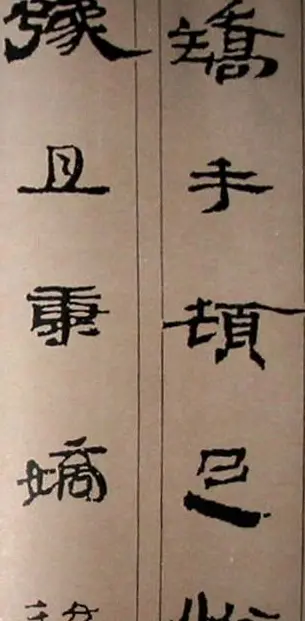 矯手頓足
豫且康嫡